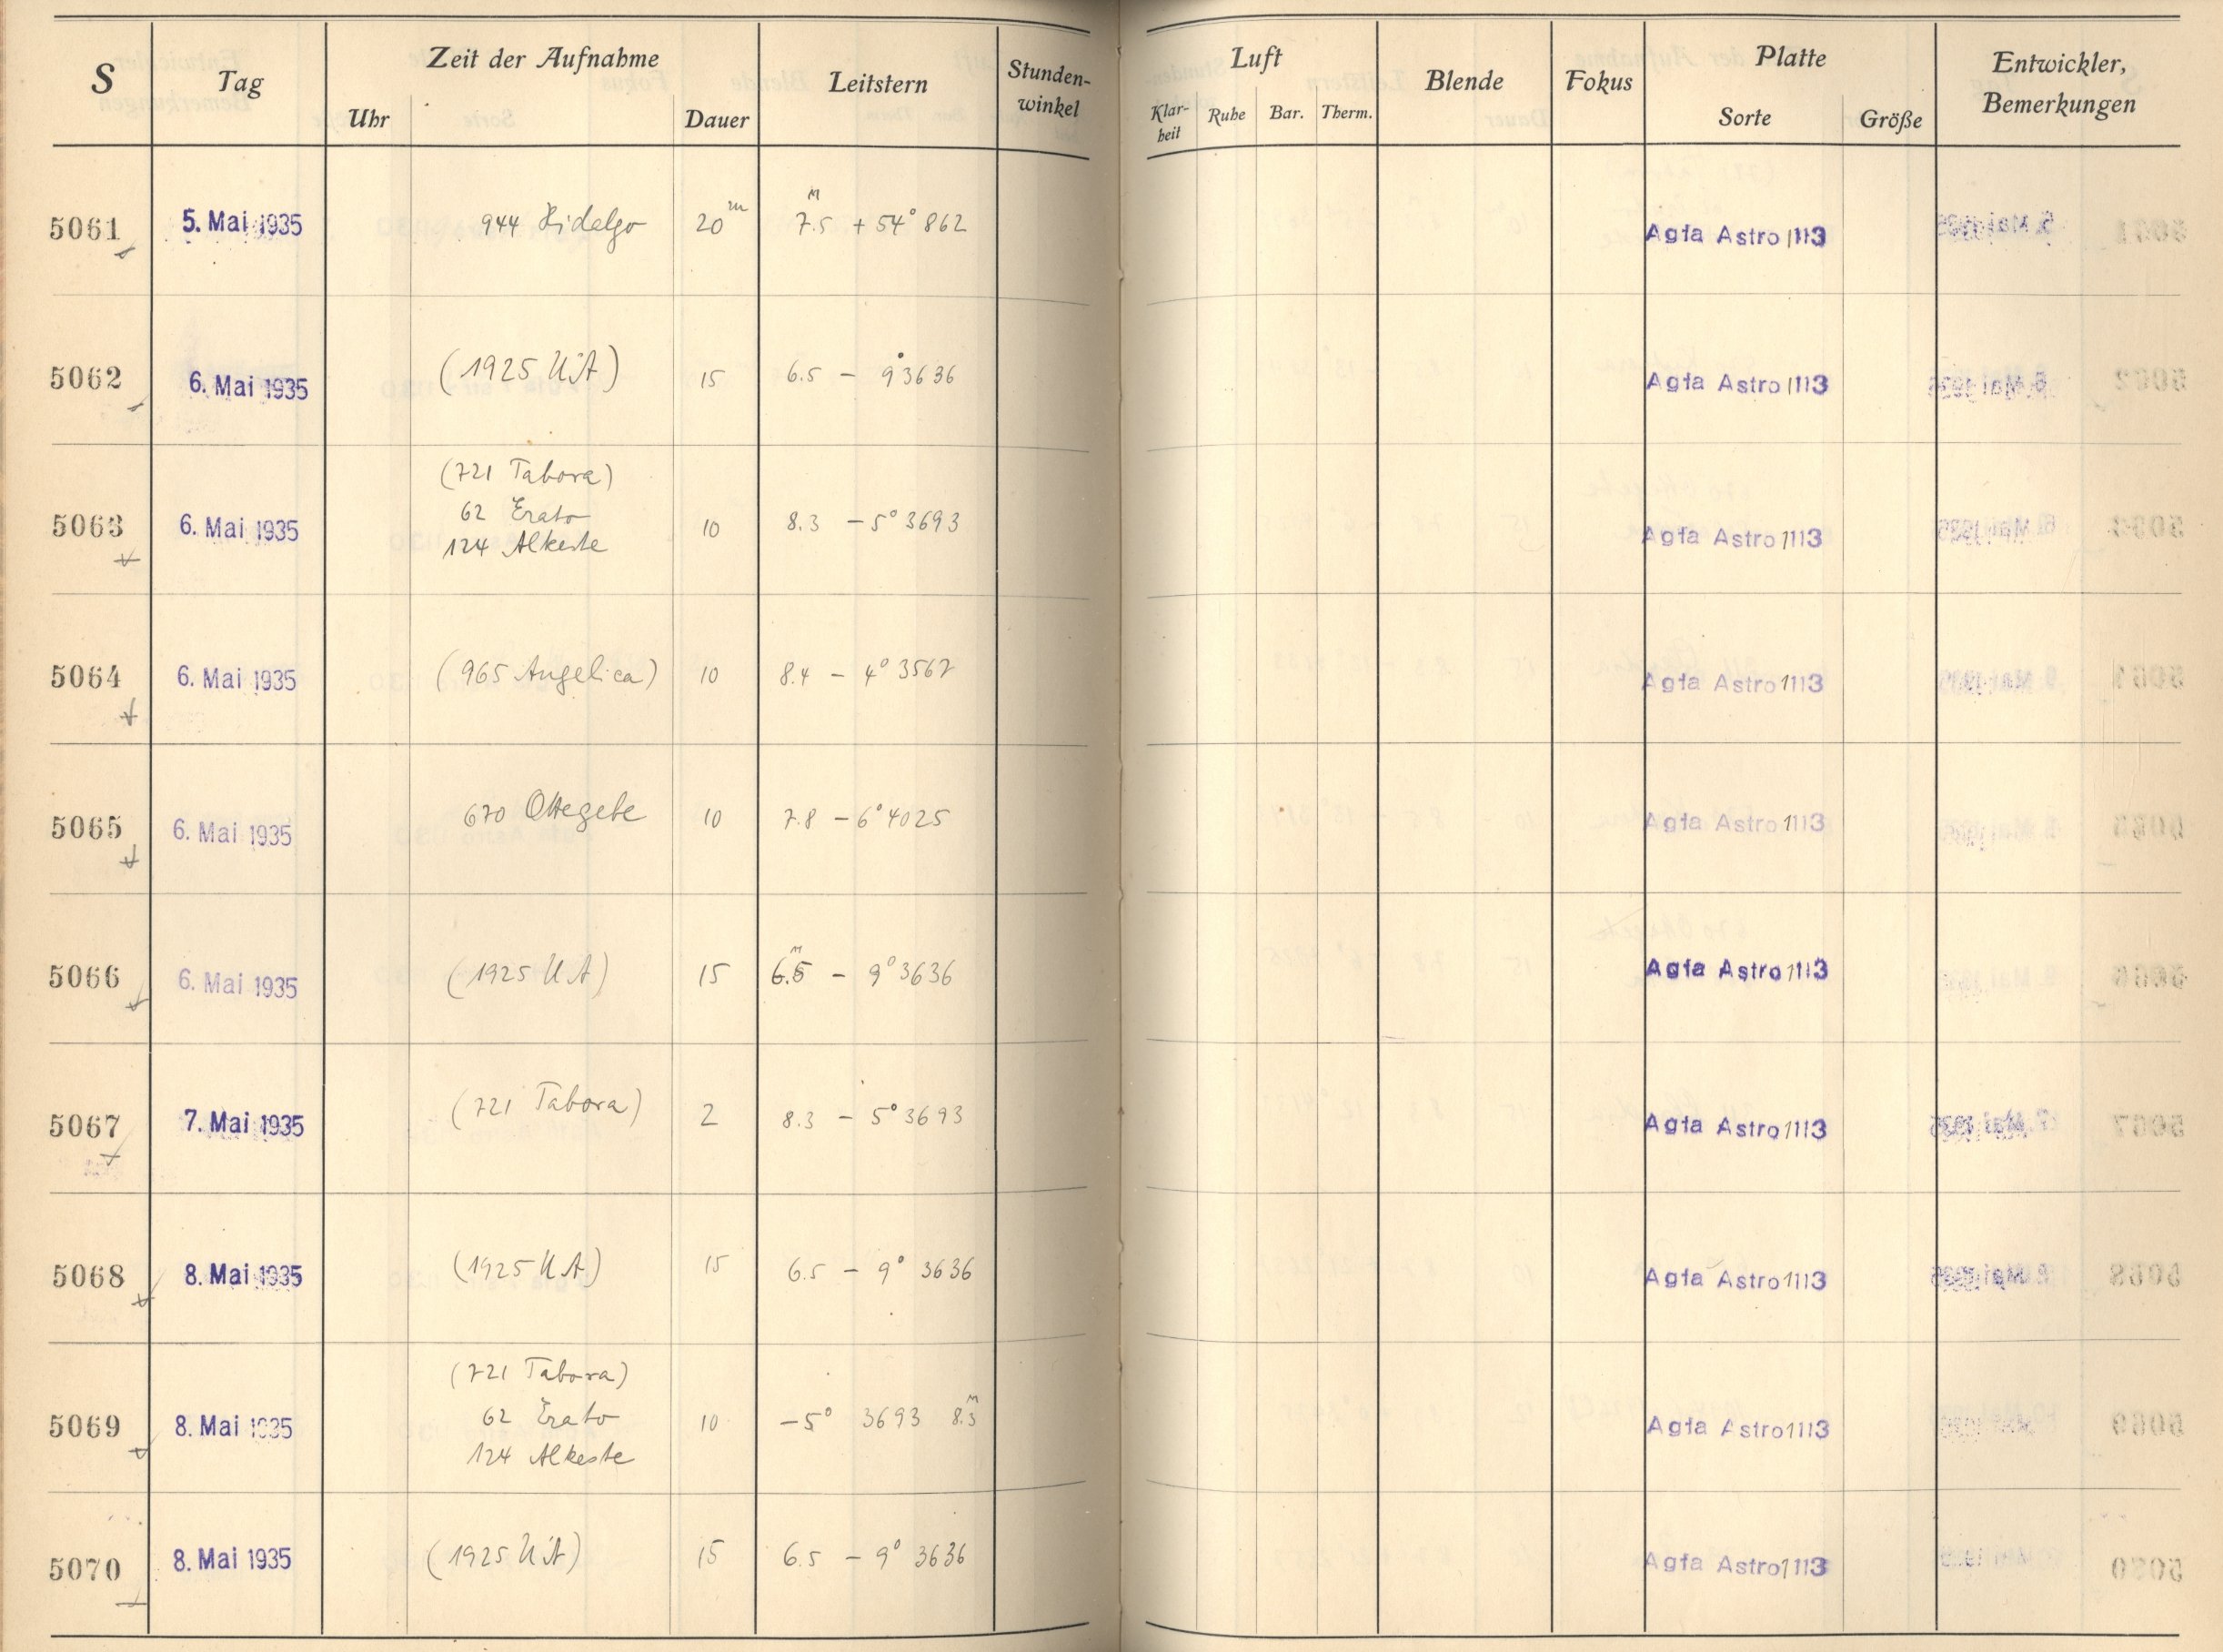 S Tag Zeit der Aufnahme Leitstern Stunden-winkel Luft Blende Fokus Platte Entwickler, Bemerkungen
Uhr Dauer Klar-heit Ruhe Bar. Therm. Sorte Größe
5061 5. Mai 1935 944 Hidalgo 20m 7.5M + 54° 862 Agfa Astro 1113
5062 6. Mai 1935 (1925 UA) 15 6.5 - 9°3636 Agfa Astro 1113
(721 Tabora)
5063 6. Mai 1935 62 Erato 10 8.3 - 5° 3693 Agfa Astro 1113
124 Alkeste
5064 6. Mai 1935 (965 Angelica) 10 8.4 - 4° 3562 Agfa Astro 1113
5065 6. Mai 1935 670 Ottegebe 10 7.8 - 6° 4025 Agfa Astro 1113
5066 6. Mai 1935 (1925 UA) 15 6.5M - 9° 3636 Agfa Astro 1113
5067 7. Mai 1935 (721 Tabora) 2 8.3 - 5° 3693 Agfa Astro 1113
5068 8. Mai 1935 (1925 UA) 15 6.5 - 9° 3636 Agfa Astro 1113
(721 Tabora)
5069 8. Mai 1935 62 Erato 10 -5° 3693 8.3M Agfa Astro 1113
124 Alkeste
5070 8. Mai 1935 (1925 UA) 15 6.5 - 9° 3636 Agfa Astro 1113